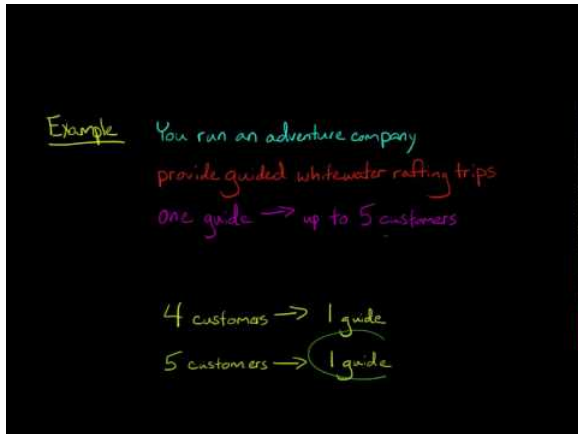 Example You run an adventure company
provide guided whitewater rafting trips
one guide → up to 5 customers
4 customers → 1 guide
5 customers → 1 guide